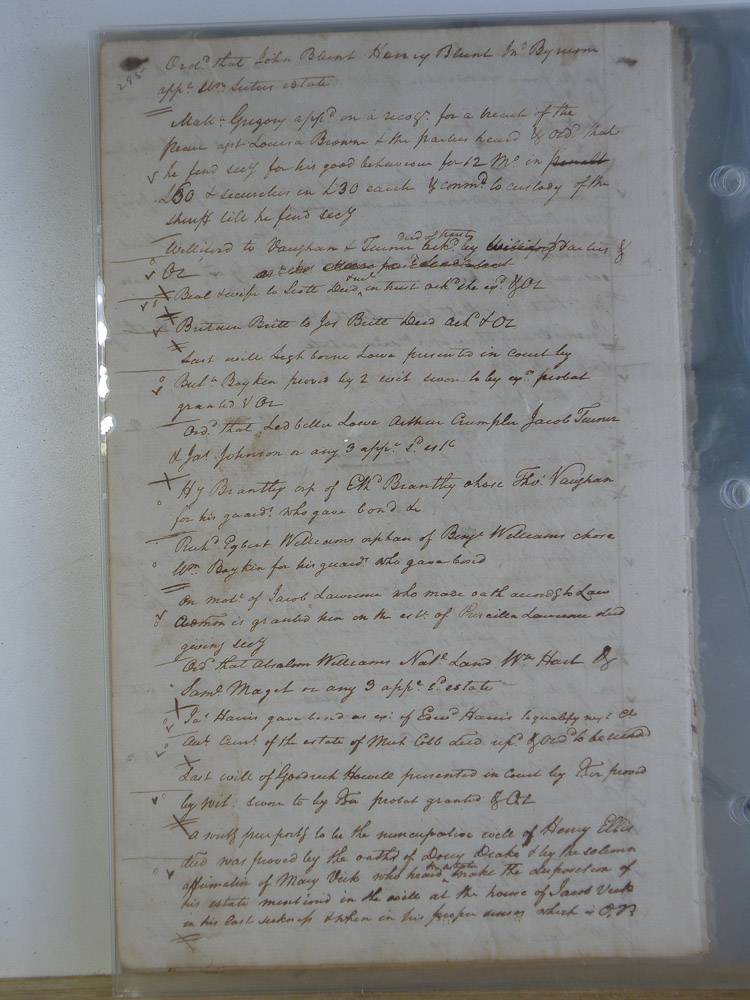 Ord.d that John Blunt Henry Blunt Jn.o Bynum
app.r Wm estate
Matt.w Gregory app.d on a recog.e for a breach of the
Peace agst Louisa Brown & the parties heard & Ord that
he find secy for his good behaviour for 12 Mo. in penalt
£50 & securities in £30 each & comm.d to custody of the
sheriff till he find secy
Welliford to Vaughan & Turner deed of trust ack.d by parties &
OR
Beal & wife to Scott Deed in trust ack.d she ex.d & OR
Britain Britt to Jas Britt Deed ack.d & OR
Last will Leighborne Lowe presented in Court by
Boykin proved by 2 wit sworn to by ex.r probat
granted & OR
Ord.d that Ledbetter Lowe Arthur Crumpler Jacob Turner
& Jas. Johnson or any 3 app.r s.d est
Hy Brantley orp of Eth.d Brantley chose Tho.s Vaughan
for his guard.n who gave bond &c
Rich.d Egbert Williams orphan of Benj.n Williams chose
Wm Boykin for his guard.n who gave bond
On mot.n of Jacob Lawrence who made oath accordg to Law
Admon is granted him on the est. of Priscilla Lawrence decd
giving secy
Ord that Absalom Williams Nat.l Land Wm Hart &
Sam.l Maget or any 3 app.r s.d estate
Jas. Harris gave bond as ex.r of Edw.d Harris to qualify next Ct
Acc.t Curr.t of the estate of Cobb decd & Ord.d to be record
Last will of Goodrich Howell presented in Court by Exor proved
by wit. sworn to by Exor probat granted & OR
A writg purportg to be the nuncupative will of Henry Ellis
decd was proved by the oaths of Drake & by the solemn
affirmation of Mary Veik who heard testator make the disposition of
his estate mentiond in the will at the house of Jacob Veik
in his last sickness & when in his proper senses which is O.R